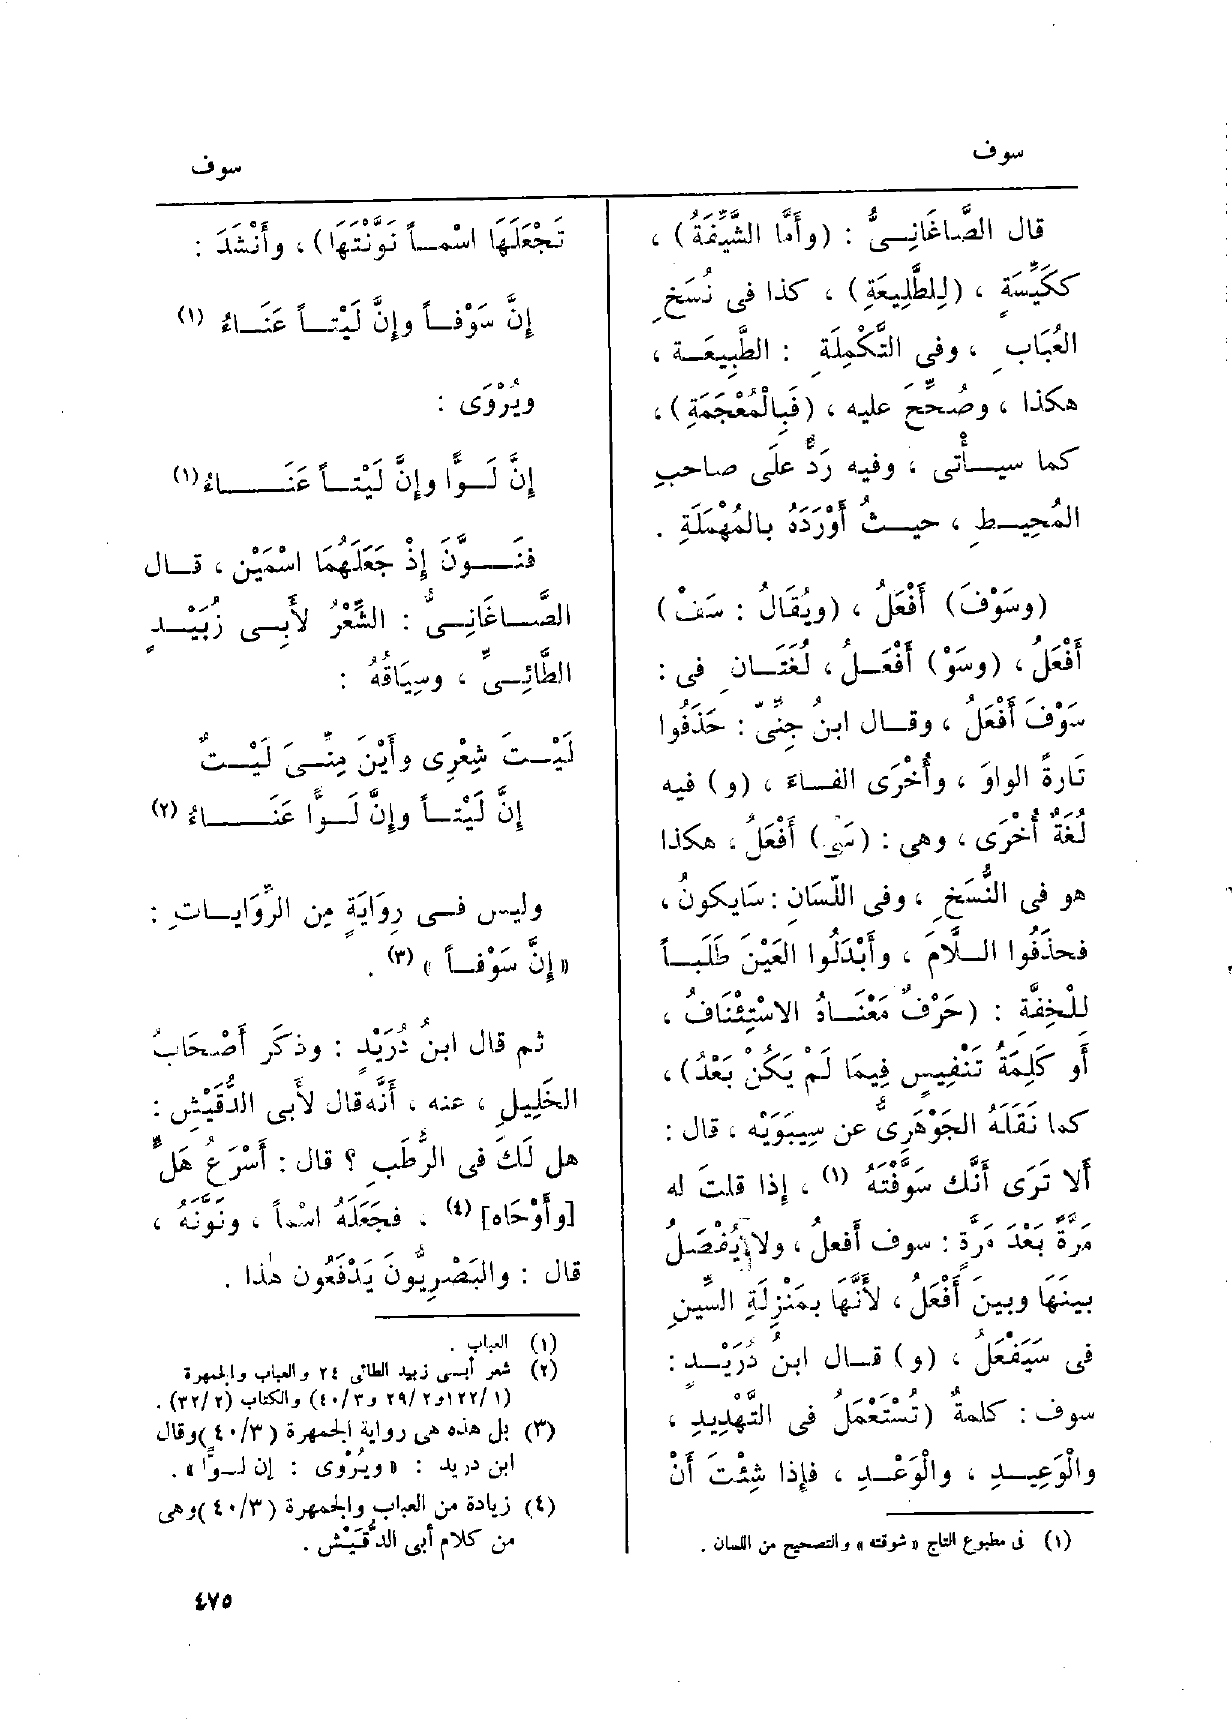 سوف
قال الصَّاغَانِىُّ : (وأَمَّا الشَّيِّفَةُ) ،
ككَيِّسَةٍ ، (لِلطَّلِيعَةِ) ، كذا فى نُسَخِ
العُبَابِ ، وفى التَّكْمِلَةِ : الطَّبِيعَة ،
هكذا ، وصُحِّحَ عليه ، (فَبِالْمُعْجَمَةِ) ،
كما سيأْتى ، وفيه رَدٌّ علَى صاحبِ
المُحِيطِ ، حيثُ أَوْرَدَهُ بالمُهْمَلَةِ .
(وسَوْفَ) أَفْعَلُ ، (ويُقَالُ : سَفْ)
أَفْعَلُ ، (وسَوْ) أَفْعَلُ ، لُغَتَانِ فى :
سَوْفَ أَفْعَلُ ، وقال ابنُ جِنِّىّ : حَذَفُوا
تَارةً الواوَ ، وأُخْرَى الفاءَ ، (و) فيه
لُغَةٌ أُخْرَى ، وهى : (سَىْ) أَفْعَلُ ، هكذا
هو فى النُّسَخِ ، وفى اللِّسَانِ : سَايكونُ ،
فحذَفُوا اللَّامَ ، وأَبْدَلُوا العَيْنَ طَلَباً
لِلْخِفَّةِ : (حَرْفٌ مَعْنَاهُ الاسْتِئْنَافُ ،
أَو كَلِمَةُ تَنْفِيسٍ فِيمَا لَمْ يَكُنْ بَعْدُ) ،
كما نَقَلَهُ الجَوْهَرِىُّ عن سِيبَوَيْه ، قال :
أَلا تَرَى أَنَّك سَوَّفْتَهُ (١) ، إِذا قلتَ له
مَرَّةً بَعْدَ مَرَّةٍ : سوف أفعلُ ، ولا يُفْصَلُ
بينَهَا وبينَ أَفْعَلُ ، لأَنَّهَا بمَنْزِلَةِ السِّينِ
فى سَيَفْعَلُ ، (و) قال ابنُ دُرَيْدٍ :
سوف : كلمةٌ (تُسْتَعْمَلُ فى التَّهْدِيدِ ،
والْوَعِيدِ ، والْوَعْدِ ، فإِذا شِئْتَ أَنْ
(١) فى مطبوع التاج « شوقته » والتصحيح من اللسان .
سوف
تَجْعَلَهَا اسْماً نَوَّنْتَهَا) ، وأَنْشَدَ :
إِنَّ سَوْفاً وإِنَّ لَيْتاً عَنَاءُ (١)
ويُرْوَى :
إِنَّ لَوًّا وإِنَّ لَيْتاً عَنَاءُ (١)
فنَوَّنَ إِذْ جَعَلَهُمَا اسْمَيْنِ ، قال
الصَّاغَانِىُّ : الشِّعْرُ لأَبِى زُبَيْدٍ
الطَّائِىِّ ، وسِيَاقُهُ :
لَيْتَ شِعْرِى وأَيْنَ مِنِّىَ لَيْتٌ
إِنَّ لَيْتاً وإِنَّ لَوًّا عَنَاءُ (٢)
وليس فى رِوَايَةٍ مِن الرِّوَايَاتِ :
« إِنَّ سَوْفاً » (٣) .
ثم قال ابنُ دُرَيْدٍ : وذكَر أَصْحَابُ
الخَلِيلِ ، عنه ، أَنَّه قال لأَبى الدُّقَيْشِ :
هل لَكَ فى الرُّطَبِ ؟ قال : أَسْرَعُ هَلٍّ
[وأَوْحَاه] (٤) . فجَعَلَهُ اسْماً ، ونَوَّنَهُ ،
قال : والبَصْرِيُّونَ يَدْفَعُون هٰذا .
(١) العباب .
(٢) شعر أبى زبيد الطائى ٢٤ والعباب والجمهرة
(١/١٢٢ و٢/٢٩ و٣/٤٠) والكتاب (٢/٣٢) .
(٣) بل هذه هى رواية الجمهرة (٣/٤٠) وقال
ابن دريد : « ويُرْوى : إن لوًّا » .
(٤) زيادة من العباب والجمهرة (٣/٤٠) وهى
من كلام أبى الدُّقَيْش .
٤٧٥